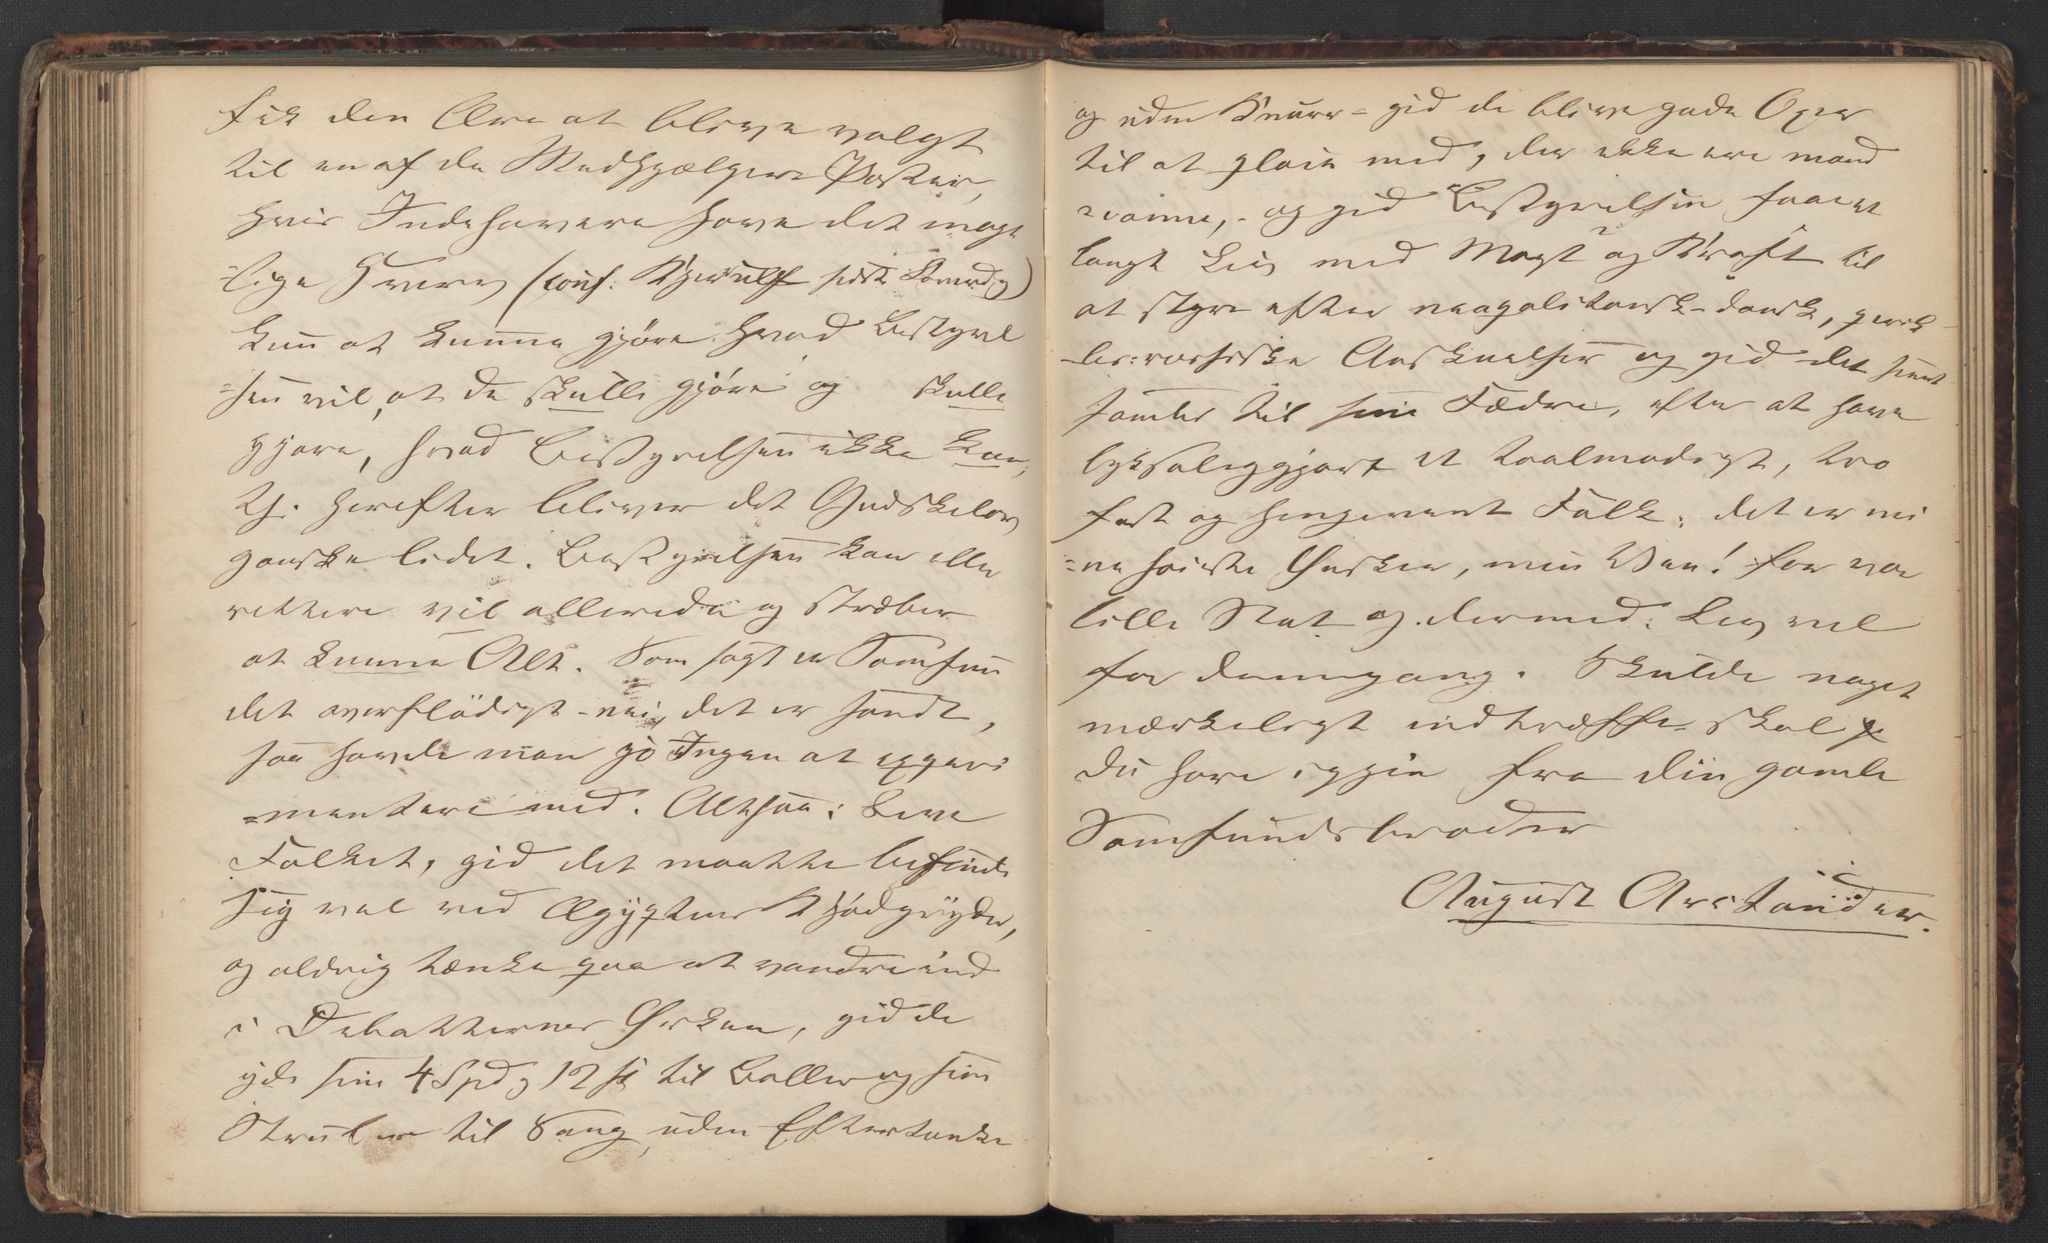 fik den Ære at blive valgt
til en af de Medhjælperes Poster,
hvis Indehavere have det mage
-lige Hverv (conf. Kjerulfs sidste
kun at kunne gjøre hvad Bestyrel
=sen vil, at de skulle gjøre og skulle
gjøre, hvad Bestyrelsen ikke kan,
th. herefter bliver det Gudskelov
ganske lidet. Bestyrelsen kan eller
rettere vil allerede og stræber
at kunne Alt. Som sagt er Samfun
det overflødigt - nei, det er sandt,
saa havde man jo Ingen at experi
=mentere med. Altsaa: Leve
Folket, gid det maatte befinde
sig vel ved Ægyptens Kjødgryder,
og aldrig tænke paa at vandre ind
i Debatternes Ørken, gid de
yde sine 4 Spd og 12 ß til Baller og sine
Struber til Sang, uden Eftertanke
og uden Knurr - gid de blive gode Oxer
til at pløie med, der ikke ere mand
=vonne, - og gid Bestyrelsen faaer et
langt Liv med Magt og Kraft til
at styre efter neapolitansk-dansk,
-russiske Anskuelser og gid det sent
samles til sine Fædre, efter at have
lyksaliggjort et taalmodigt, tro
fast og hengivent Folk; det er mi
=ne høieste Ønsker, min Ven! for vor
lille Stat og dermed: Lev vel
for dennegang. Skulde noget
mærkeligt indtræffe skal
du høre igjen fra din gamle
Samfundsbroder
August Arctander.